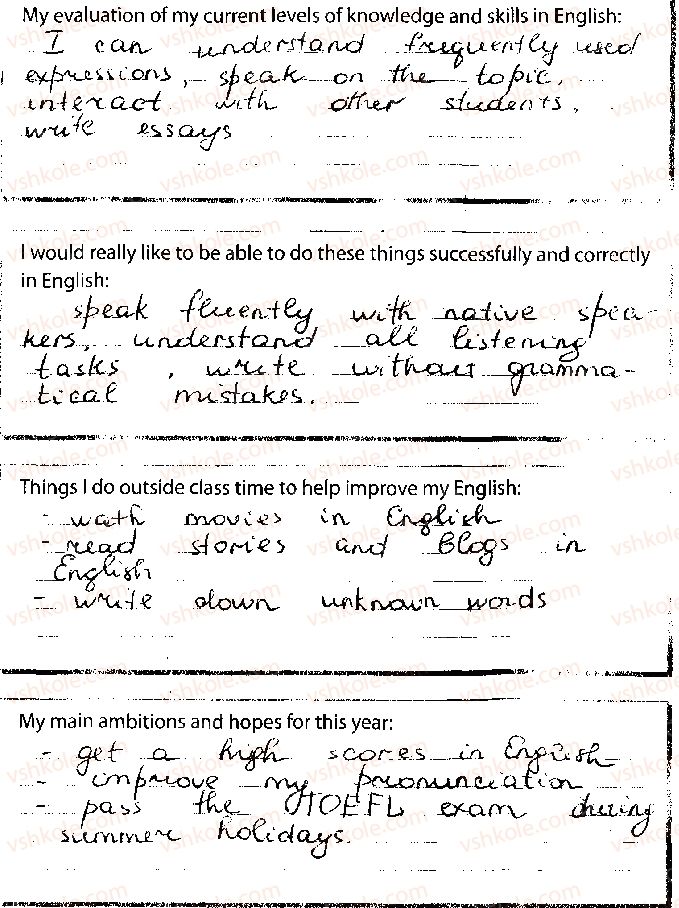 My evaluation of my current levels of knowledge and skills in English:
I can understand frequently used
expressions, speak on the topic,
interact with other students,
write essays
I would really like to be able to do these things successfully and correctly
in English:
speak fluently with native spea-
kers, understand all listening
tasks, write without gramma-
tical mistakes.
Things I do outside class time to help improve my English:
- wath movies in English
- read stories and Blogs in
English
- write down unknown words
My main ambitions and hopes for this year:
- get a high scores in English
- improve my pronunciation
- pass the TOEFL exam during
summer holidays.
vshkole.com